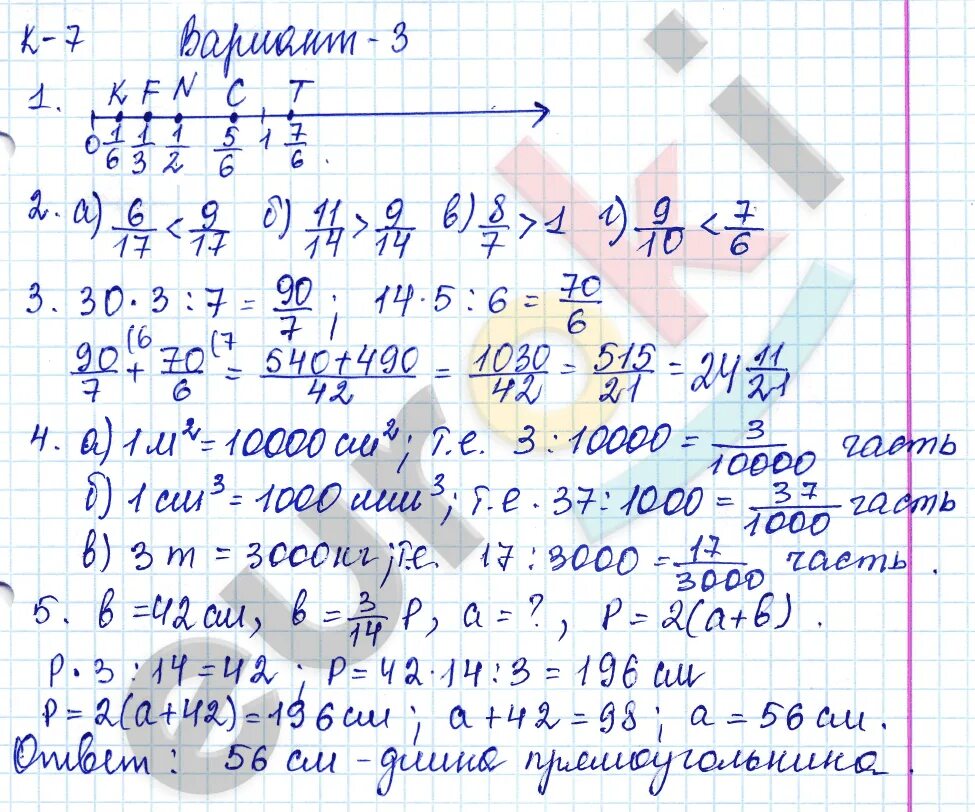 К-7 Вариант-3
1. K F N C T
0 1/6 1/3 1/2 5/6 1 7/6
2. а) 6/17 < 9/17 б) 11/14 > 9/14 в) 8/7 > 1 г) 9/10 < 7/6
3. 30·3:7 = 90/7; 14·5:6 = 70/6
90/7 (6 + 70/6 (7 = 540+490/42 = 1030/42 = 515/21 = 24 11/21
4. а) 1 м² = 10000 см²; т.е. 3:10000 = 3/10000 часть
б) 1 см³ = 1000 мм³; т.е. 37:1000 = 37/1000 часть
в) 3 т = 3000 кг; т.е. 17:3000 = 17/3000 часть.
5. в = 42 см, в = 3/14 P, а = ?, P = 2(а+в).
P·3:14 = 42; P = 42·14:3 = 196 см
P = 2(а+42) = 196 см; а+42 = 98; а = 56 см.
Ответ: 56 см - длина прямоугольника.
euroki